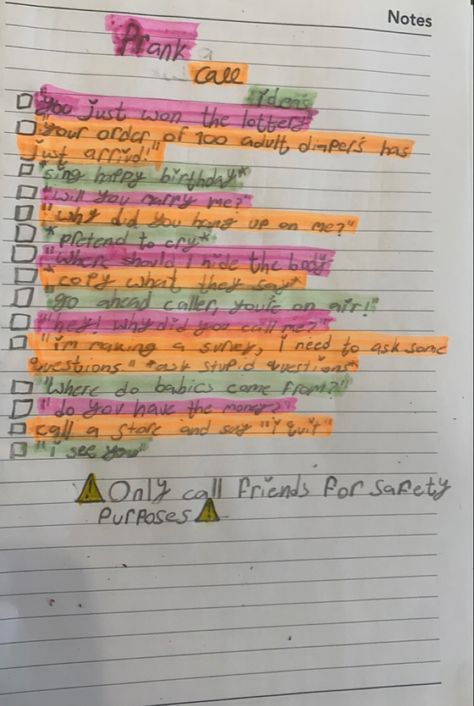 Notes
Prank
call
ideas
"You just won the lottery"
"Your order of 100 adult diapers has
just arrivd!"
*sing happy birthday*
"will you marry me?"
"why did you hang up on me?"
*pretend to cry*
"Where should I hide the body
*copy what they say*
"go ahead caller, you're on air!"
"hey! why did you call me?"
"i'm making a survey, i need to ask some
questions." *ask stupid questions*
"Where do babies come from?"
"do you have the money?"
call a store and say "i quit"
"i see you"
⚠Only call friends for safety
purposes⚠